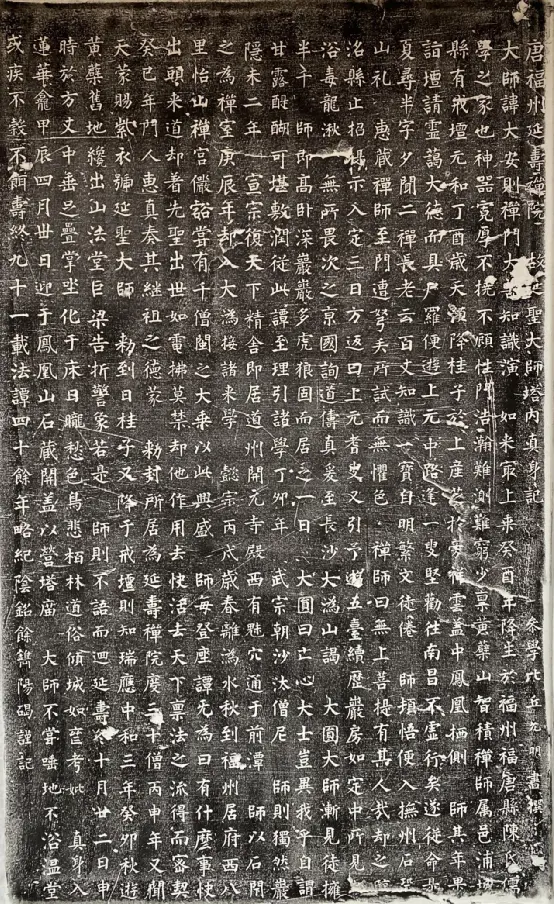 唐福州延壽禪院故延聖大師塔內真身記 參學比丘允明書撰
大師諱大安則禪門大善知識演 如来最上乘癸酉年降生於福州福唐縣陳氏儒
學之家也神器寬厚不撓不顧性門浩瀚難測難窮少稟黃蘗山智積禪師属邑浦城
縣有戒壇元和丁酉歲天復降桂子於上座於祥雲盖中鳳凰栖側 師其年果
詣壇請靈藹大德而具尸羅便遊上元中路逢一叟堅勸往南昌不虛行矣遂從命
夏尋半字夕聞二禪長老云百丈知識一寶自明繁文徒倦 師頓悟便入撫州石鞏
山礼 惠蔵禪師至門遭弩夫所試而無懼色 禪師曰無上菩提有其人哉却之
洺縣止招提示入定三日方返曰上元耆叟又引予遊五臺續歷巖房如定中所見
浴毒龍湫 無所畏次之京國詢道傳真爰至長沙大溈山謁 大圓大師漸見徒擁
半千 師即高卧深巖巖多虎狼固而居之一日 大圓曰亡心大士豈異我乎自謂
甘露醍醐可堪敷潤從此譚至理引諸學丁卯年 武宗朝沙汰僧尼 師則獨然巖
隱未二年 宣宗復天下精舍即居道州開元寺殿西有魅穴通于前潭 師以石閉
之為禪室庚辰年却入大溈接諸来學 懿宗丙戌歲春離溈水秋到福州居府西八
里怡山禪宮儼豁嘗有千僧闐之大乘以此興盛 師每登座譚无為曰有什麼事快
出頭来道却着先聖出世如電拂莫禁却他作用去快活去天下禀法之流得而審契
癸巳年門人惠真奏其継祖之德蒙 勑封所居為延壽禪院度二十僧丙申年又聞
天蒙賜紫衣號延聖大師 勑到日桂子又降于戒壇則知瑞應中和三年癸卯秋遊
黄蘗舊地纔出山法堂巨梁告折警象若是 師則不語而迴延壽冬十月廿二日申
時於方丈中垂足疊掌坐化于床日矓愁色鳥悲栢林道俗傾城如
蓮華龕甲辰四月廿日迎于鳳凰山石蔵開盖以營塔廟 大師不甞唾地不浴溫堂
或疾不毉不餌壽終九十一載法譚四十餘年略紀陰銘餘鐫陽碣謹記